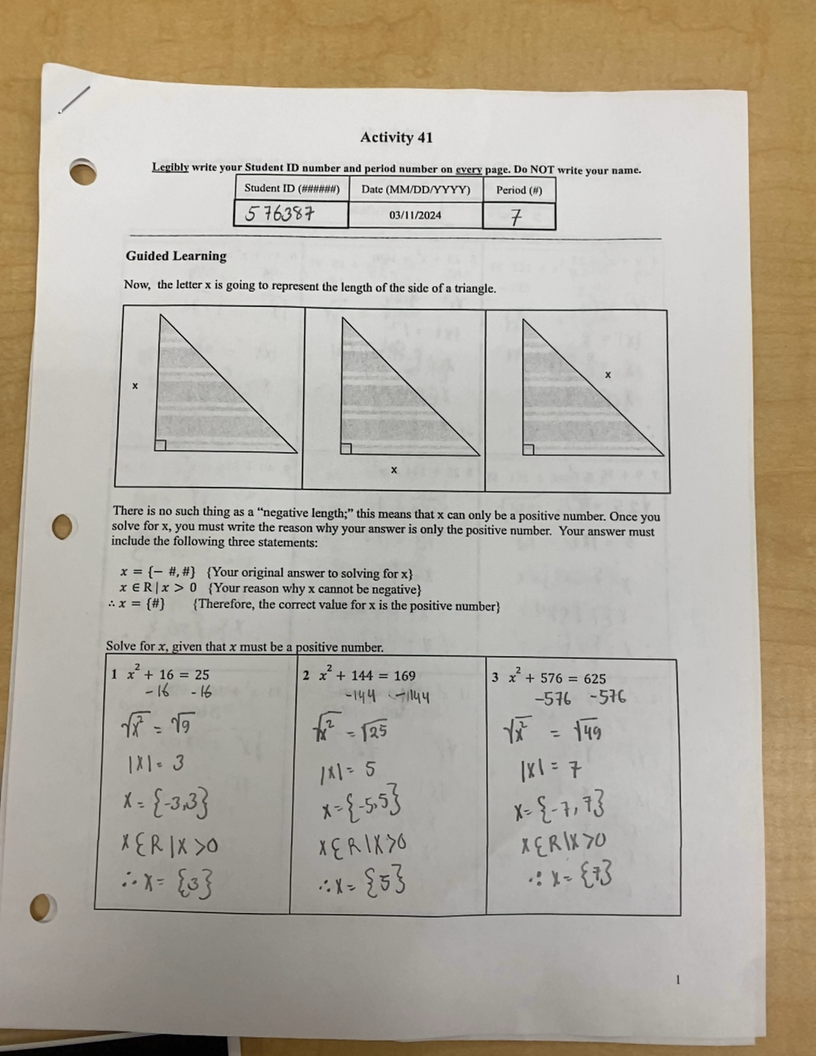 Activity 41
Legibly write your Student ID number and period number on every page. Do NOT write your name.
Student ID (######) Date (MM/DD/YYYY) Period (#)
576387 03/11/2024 7
Guided Learning
Now, the letter x is going to represent the length of the side of a triangle.
x
x
x
There is no such thing as a “negative length;” this means that x can only be a positive number. Once you
solve for x, you must write the reason why your answer is only the positive number. Your answer must
include the following three statements:
x = {− #, #} {Your original answer to solving for x}
x ∈ R | x > 0 {Your reason why x cannot be negative}
∴ x = {#} {Therefore, the correct value for x is the positive number}
Solve for x, given that x must be a positive number.
1 x² + 16 = 25
-16 -16
√x² = √9
|x| = 3
x = {-3,3}
x ∈ R | x > 0
∴ x = {3}
2 x² + 144 = 169
-144 -144
√x² = √25
|x| = 5
x = {-5,5}
x ∈ R | x > 0
∴ x = {5}
3 x² + 576 = 625
-576 -576
√x² = √49
|x| = 7
x = {-7,7}
x ∈ R | x > 0
∴ x = {7}
1